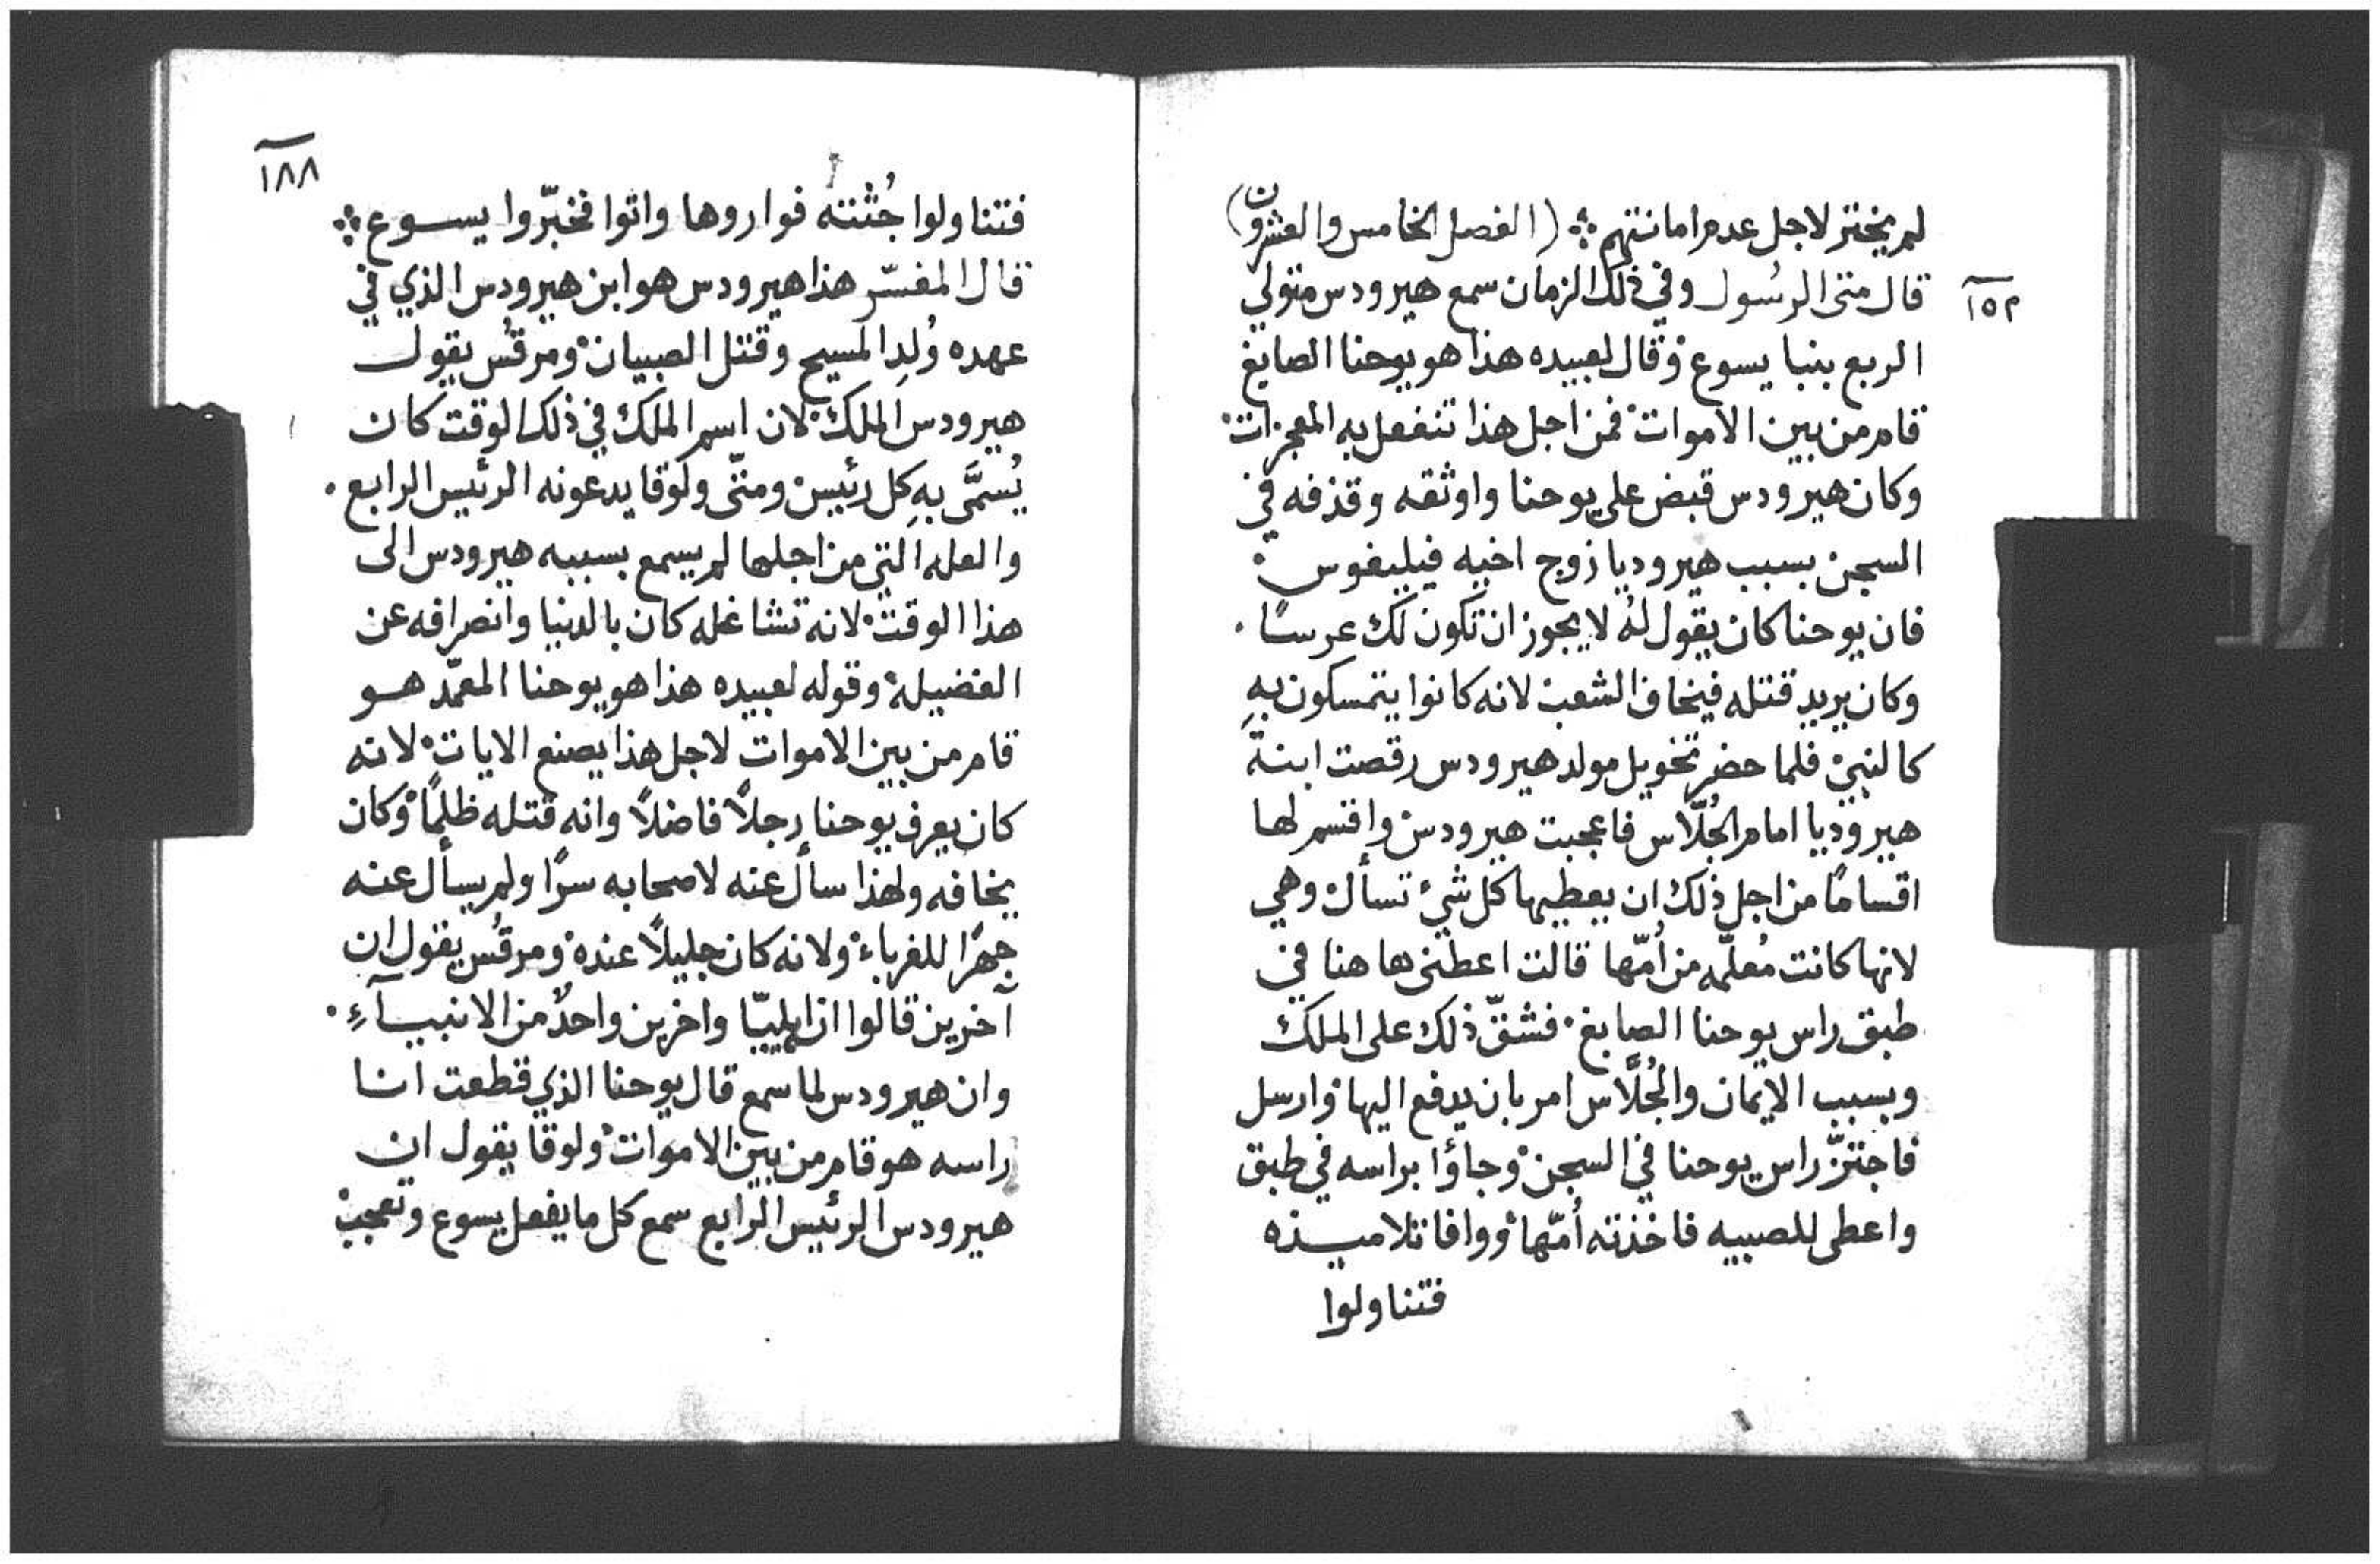 لم يختر لاجل عدم امانتهم ❖ (الفصل الخامس والعشرون)
١٥٢
قال متى الرسُول وفي ذلك الزمان سمع هيرودس متولي
الربع بنبا يسوع وقال لعبيده هذا هو يوحنا الصابغ
قام من بين الاموات فمن اجل هذا تنفعل به المعجزات
وكان هيرودس قبض على يوحنا واوثقه وقذفه في
السجن بسبب هيروديا زوج اخيه فيليفوس
فان يوحنا كان يقول لهُ لا يجوز ان تكون لك عرسًا.
وكان يريد قتله فيخاف الشعب لانه كانوا يتمسكون بهِ
كالنبي فلما حضر تحويل مولد هيرودس رقصت ابنة
هيروديا امام الجُلّاس فاعجبت هيرودس واقسم لها
اقسامًا من اجل ذلك ان يعطيها كل شيء تسأل وهي
لانها كانت مُعلّمه من اُمّها قالت اعطني هاهنا في
طبق راس يوحنا الصابغ فشقّ ذلك على الملك
وبسبب الايمان والجُلَّاس امر بان يدفع اليها وارسل
فاجتزّ راس يوحنا في السجن وجاؤا براسه في طبق
واعطى للصبيه فاخذته اُمّها ووافا تلاميذه
فتناولوا
١٨٨
فتناولوا جُثته فواروها واتوا فخبّروا يسوع ❖
قال المفسّر هذا هيرودس هو ابن هيرودس الذي في
عهده وُلِد المسيح وقتل الصبيان ومرقُس يقول
هيرودس الملك لان اسم الملك في ذلك الوقت كان
يُسمَّى بهِ كل رئيس ومتّى ولوقا يدعونه الرئيس الرابع.
والعله التي من اجلها لم يسمع بسببه هيرودس الى
هذا الوقت لانه تشاغله كان بالدنيا وانصرافه عن
الفضيلة وقوله لعبيده هذا هو يوحنا المعمّد هو
قام من بين الاموات لاجل هذا يصنع الايات لانه
كان يعرف يوحنا رجلاً فاضلاً وانه قتله ظلمًا وكان
يخافه ولهذا سأل عنه لاصحابه سرًا ولم يسأل عنه
جهرًا للغرباء ولانه كان جليلاً عنده ومرقُس يقول ان
آخرين قالوا انه ايليّا واخرين واحدٌ من الانبيآءِ.
وان هيرودس لما سمع قال يوحنا الذي قطعت انا
راسه هو قام من بين الاموات ولوقا يقول ان
هيرودس الرئيس الرابع سمع كل ما يفعل يسوع وتعجب